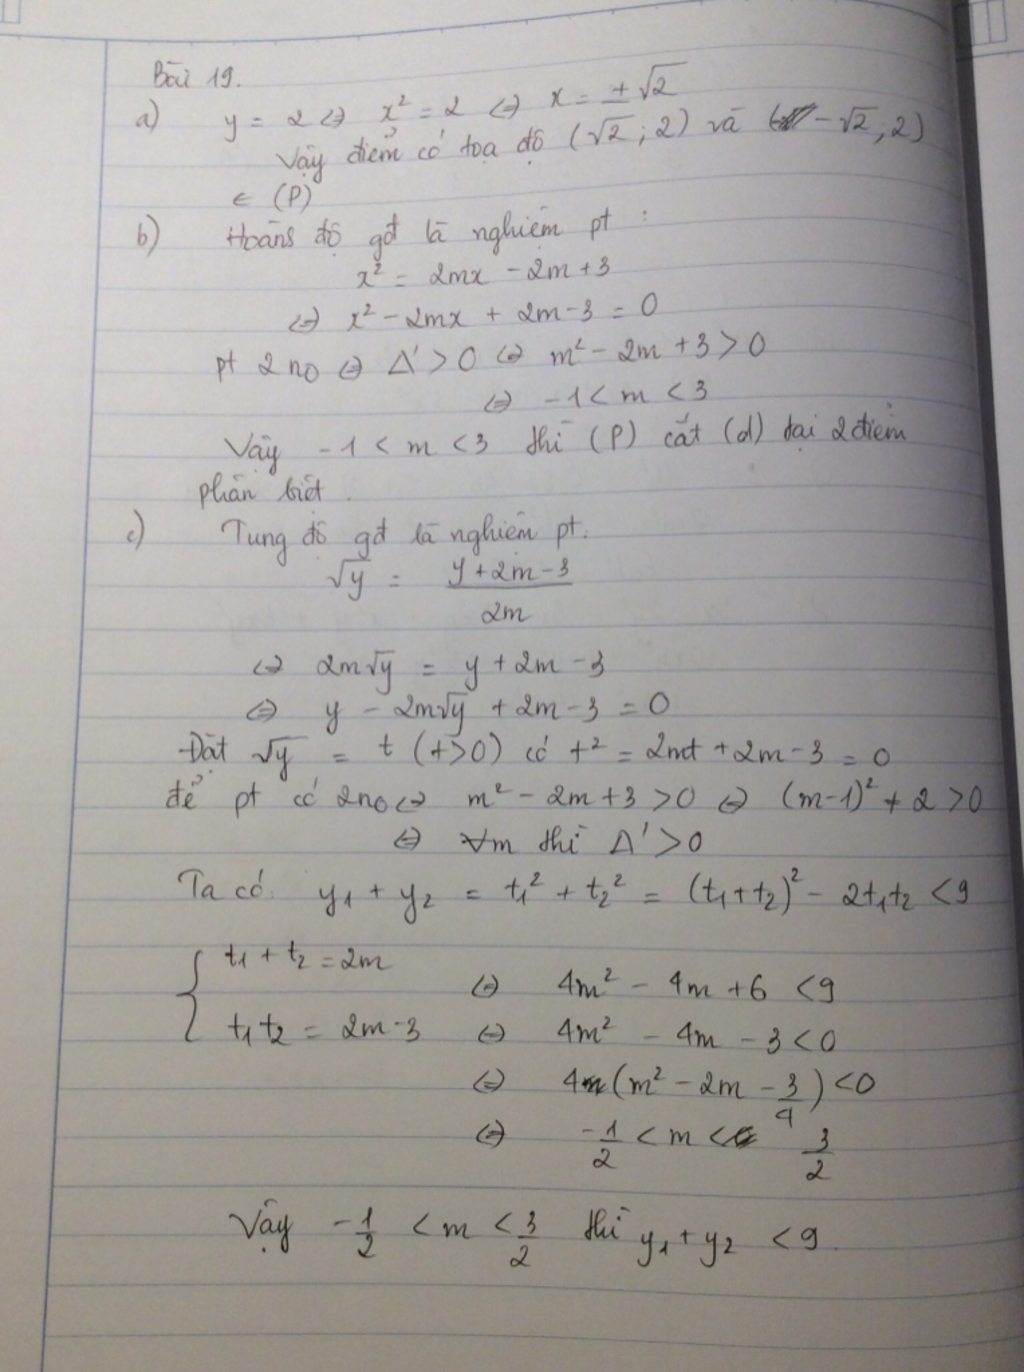 Bài 19.
a) y = 2 ⇔ x² = 2 ⇔ x = ±√2
Vậy điểm có toạ độ (√2 ; 2) và (-√2 ; 2)
∈ (P)
b) Hoành độ gđ là nghiệm pt :
x² = 2mx - 2m + 3
⇔ x² - 2mx + 2m - 3 = 0
pt 2 no ⇔ Δ' > 0 ⇔ m² - 2m + 3 > 0
⇔ -1 < m < 3
Vậy -1 < m < 3 thì (P) cắt (d) tại 2 điểm
phân biệt .
c) Tung độ gđ là nghiệm pt.
√y = (y + 2m - 3)/2m
⇔ 2m√y = y + 2m - 3
⇔ y - 2m√y + 2m - 3 = 0
Đặt √y = t (t > 0) có t² = 2mt + 2m - 3 = 0
để pt có 2 no ⇔ m² - 2m + 3 > 0 ⇔ (m-1)² + 2 > 0
⇔ ∀m thì Δ' > 0
Ta có y₁ + y₂ = t₁² + t₂² = (t₁ + t₂)² - 2t₁t₂ < 9
{ t₁ + t₂ = 2m ⇔ 4m² - 4m + 6 < 9
t₁t₂ = 2m - 3 ⇔ 4m² - 4m - 3 < 0
⇔ 4(m² - 2m - 3/4) < 0
⇔ -1/2 < m < 3/2
Vậy -1/2 < m < 3/2 thì y₁ + y₂ < 9.